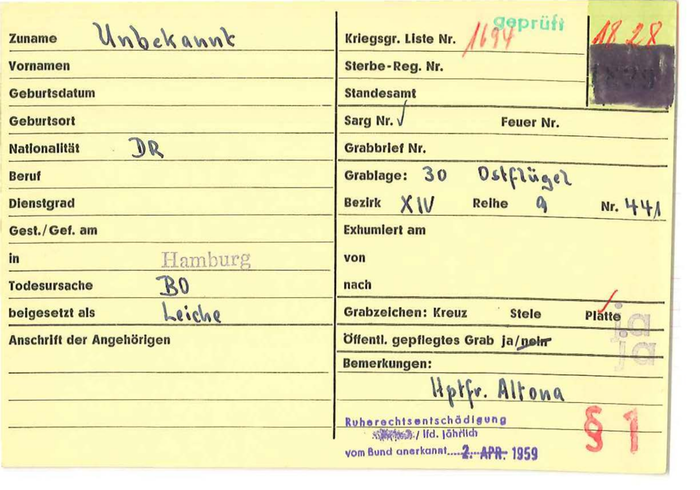 geprüft
Zuname Unbekannt
Vornamen
Geburtsdatum
Geburtsort
Nationalität DR
Beruf
Dienstgrad
Gest./Gef. am
in Hamburg
Todesursache BO
beigesetzt als Leiche
Anschrift der Angehörigen
Kriegsgr. Liste Nr. 1694
1828
Sterbe-Reg. Nr.
Standesamt
Sarg Nr. √ Feuer Nr.
Grabbrief Nr.
Grablage: 30 Ostflügel
Bezirk XIV Reihe 9 Nr. 441
Exhumiert am
von
nach
Grabzeichen: Kreuz Stele Platte
ja
Öffentl. gepflegtes Grab ja/nein
Bemerkungen:
Hptfr. Altona
Ruherechtsentschädigung
/ lfd. jährlich
vom Bund anerkannt 2. APR. 1959
§ 1